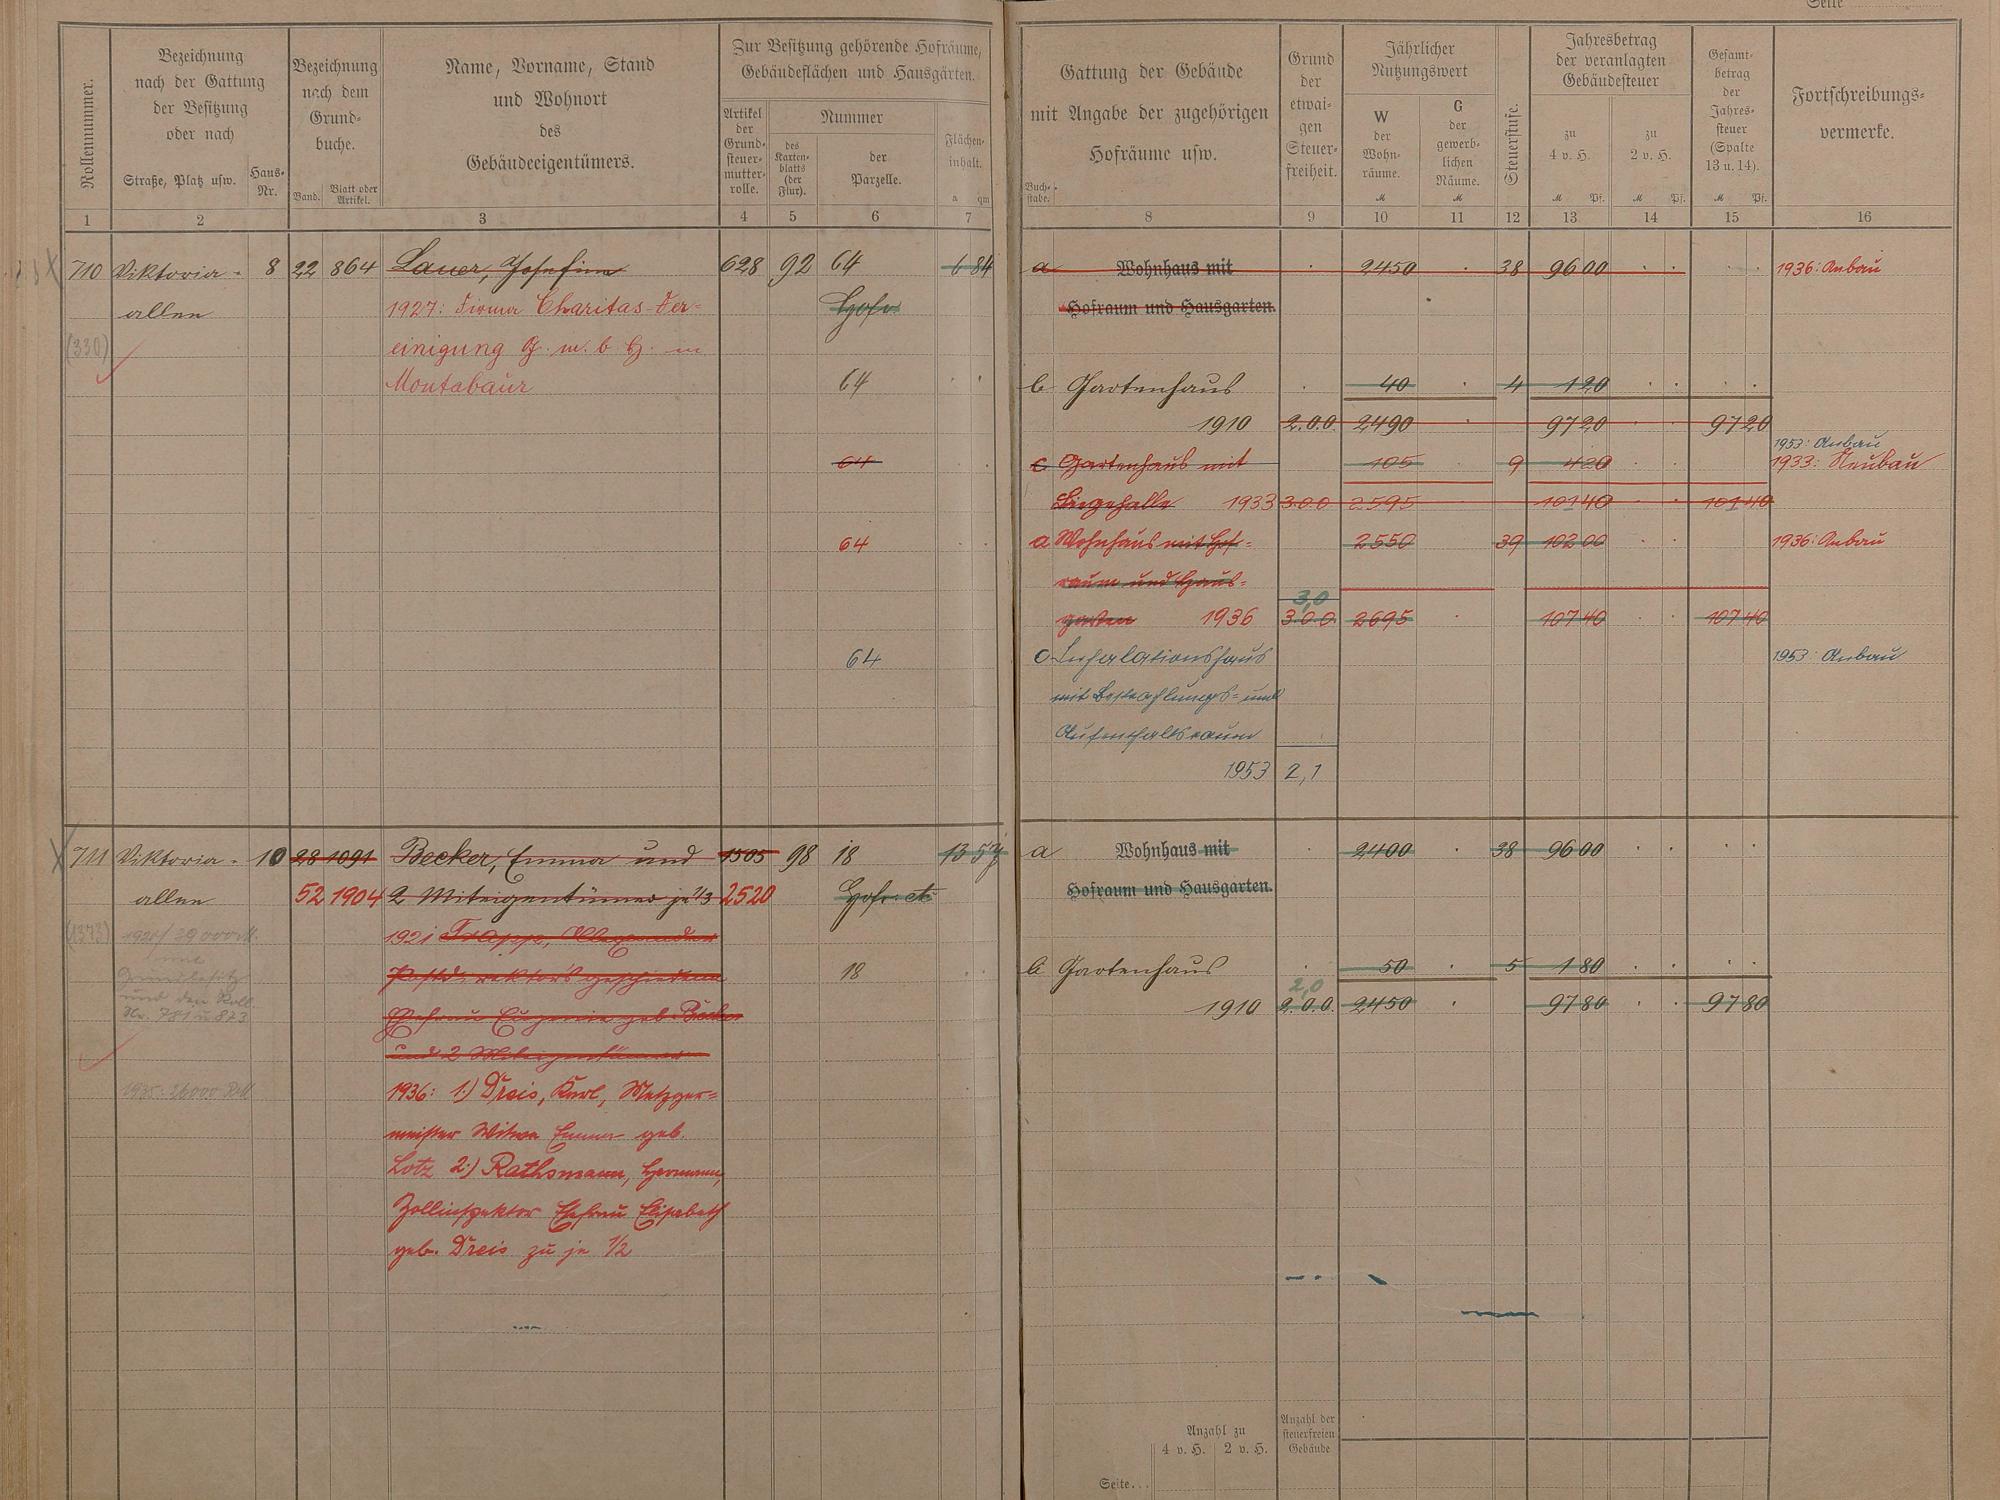 Seite
Rollennummer.
Bezeichnung
nach der Gattung
der Besitzung
oder nach
Straße, Platz usw.
Haus-
Nr.
Bezeichnung
nach dem
Grund-
buche.
Band.
Blatt oder
Artikel.
Name, Vorname, Stand
und Wohnort
des
Gebäudeeigentümers.
Zur Besitzung gehörende Hofräume,
Gebäudeflächen und Hausgärten.
Artikel
der
Grund-
steuer-
mutter-
rolle.
Nummer
des
Karten-
blatts
(der
Flur).
der
Parzelle.
Flächen-
inhalt.
a qm
Gattung der Gebäude
mit Angabe der zugehörigen
Hofräume usw.
Buch-
stabe.
Grund
der
etwai-
gen
Steuer-
freiheit.
Jährlicher
Nutzungswert
W
der
Wohn-
räume.
M
G
der
gewerb-
lichen
Räume.
M
Steuerstufe.
Jahresbetrag
der veranlagten
Gebäudesteuer
zu
4 v. H.
M Pf.
zu
2 v. H.
M Pf.
Gesamt-
betrag
der
Jahres-
steuer
(Spalte
13 u. 14).
M Pf.
Fortschreibungs-
vermerke.
1 2 3 4 5 6 7 8 9 10 11 12 13 14 15 16
710 Viktoria- 8 22 864 Lauer, Josefine 628 92 64 6 84 a Wohnhaus mit 2450 38 96 00 1936: Anbau
allee 1927: Firma Charitas-Ver- Hofr. Hofraum und Hausgarten.
(330) einigung G. m. b. H. in
Montabaur 64 b Gartenhaus 40 4 1 20
1910 2.0.0. 2490 97 20 97 20
1953: Anbau
64 c Gartenhaus mit 105 9 4 20 1933: Neubau
Liegehalle 1933 3.0.0 2595 101 40 101 40
64 a Wohnhaus mit Hof- 2550 39 102 00 1936: Anbau
raum und Haus-
3,0
garten 1936 3.0.0. 2695 107 40 107 40
64 c Inhalationshaus 1953: Anbau
mit Bestrahlungs- und
Aufenthaltsraum
1953 2,1
711 Viktoria- 10 28 1091 Becker, Emma und 1505 98 18 13 57 a Wohnhaus mit 2400 38 96 00
allee 52 1904 2 Miteigentümer je 1/3 2520 Hofr. etc Hofraum und Hausgarten.
(1373) 1921 Trapp, Alexander
Postdirektors geschiedene 18 b Gartenhaus 50 5 1 80
2,0
Ehefrau Eugenie geb. Becker 1910 2.0.0. 2450 97 80 97 80
Grundbesitz
und den Roll
Nr. 781 u. 873
und 2 Miteigentümer
1935: 26000 RM
1936: 1.) Dreis, Karl, Metzger-
meister Witwe Emma geb.
Lotz 2.) Rathsmann, Hermann,
Zollinspektor Ehefrau Elisabeth
geb. Dreis zu je 1/2
Anzahl zu
4 v. H. 2 v. H.
Anzahl der
steuerfreien
Gebäude
Seite...